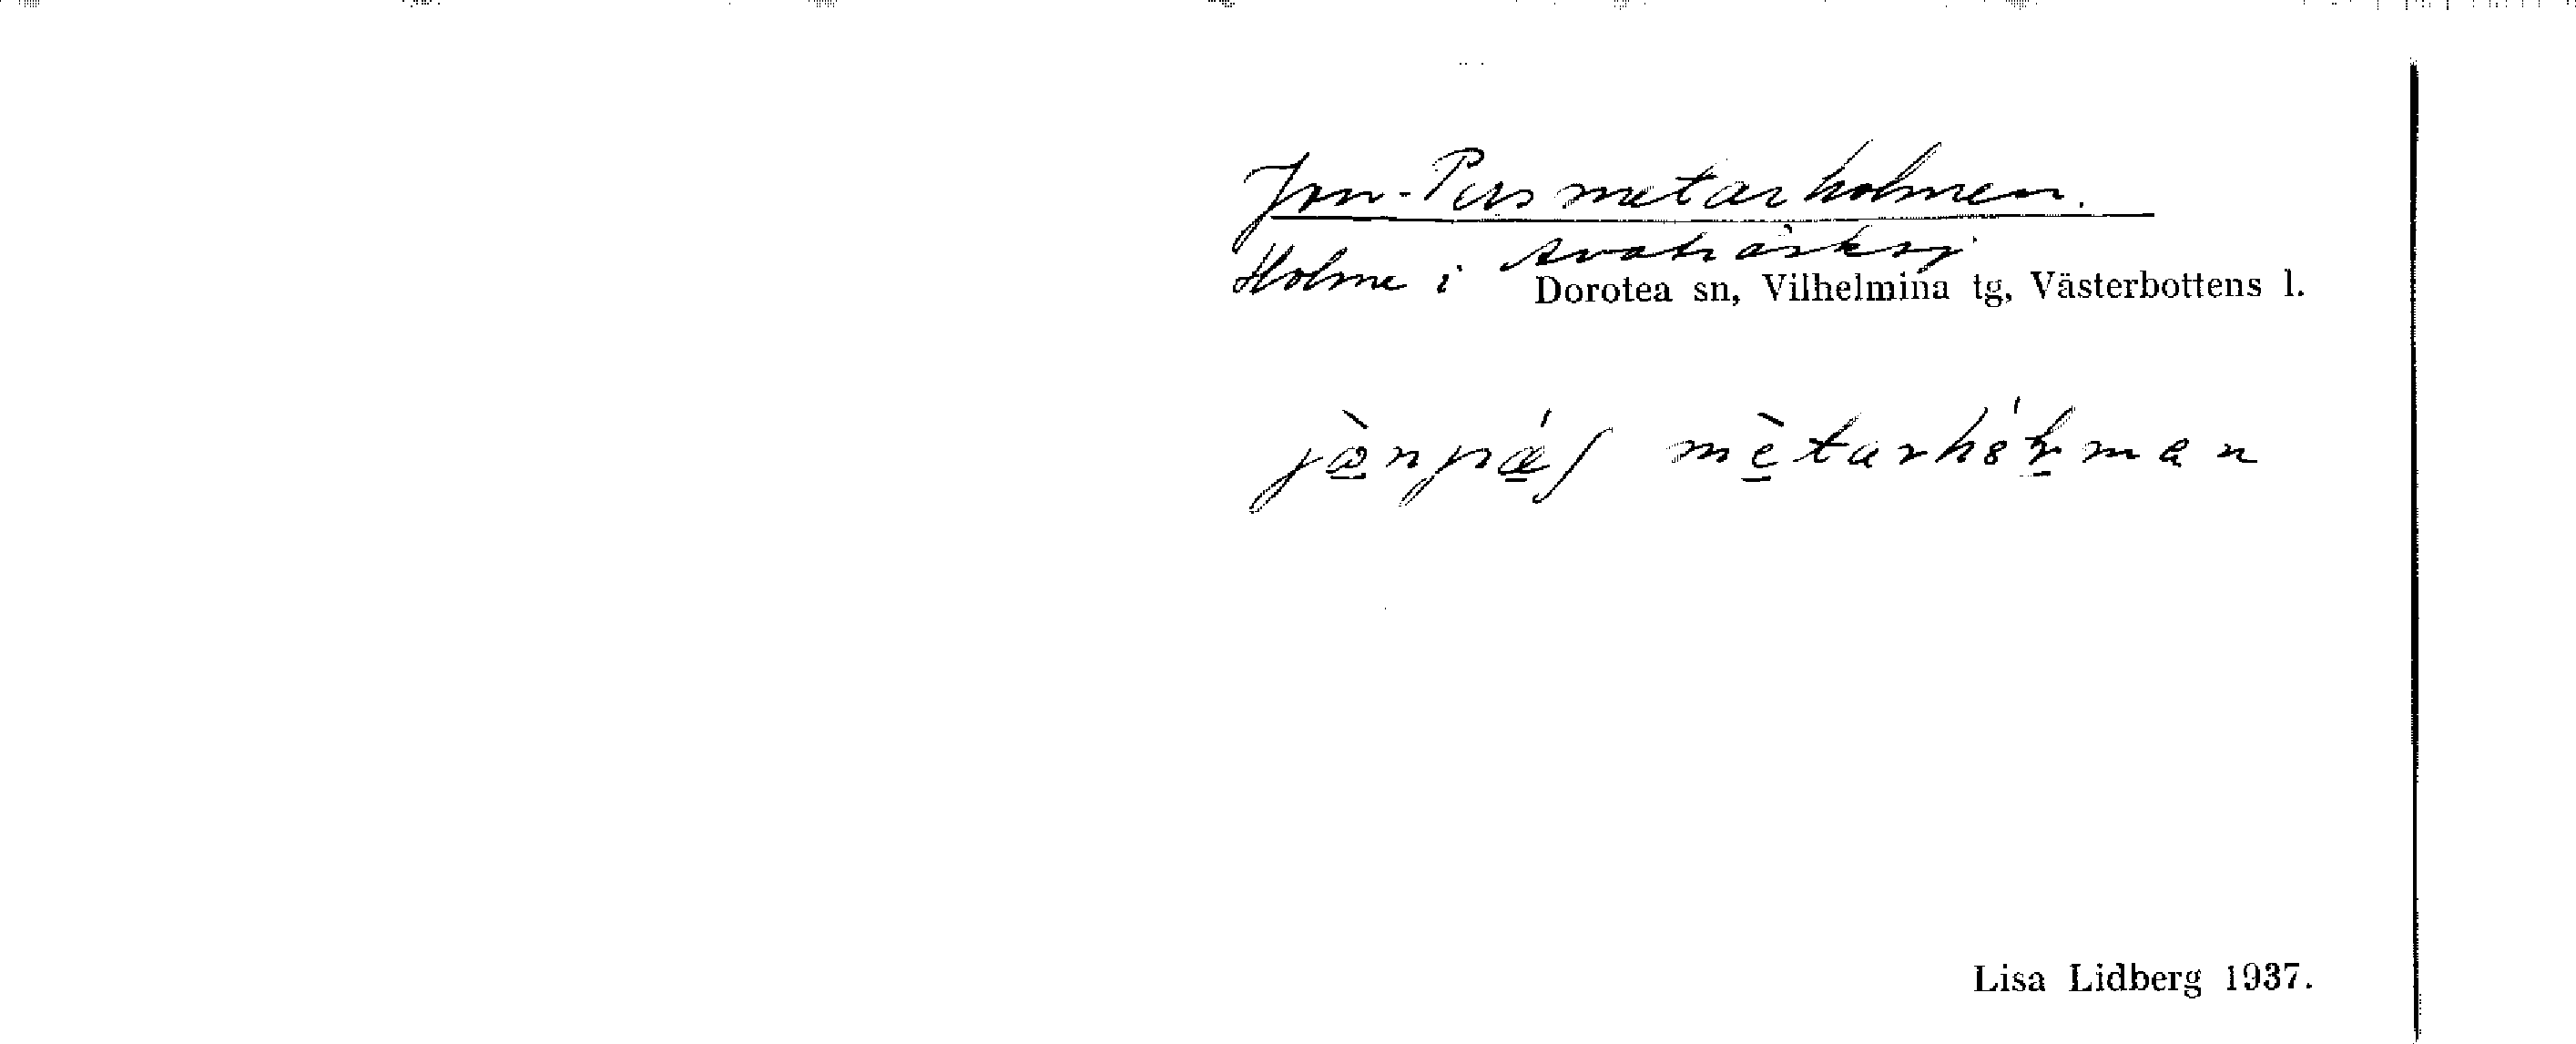 Jon-Pers metarholmen.
Holme i Avaträsksj
Dorotea sn, Vilhelmina tg, Västerbottens l.
Lisa Lidberg 1937.